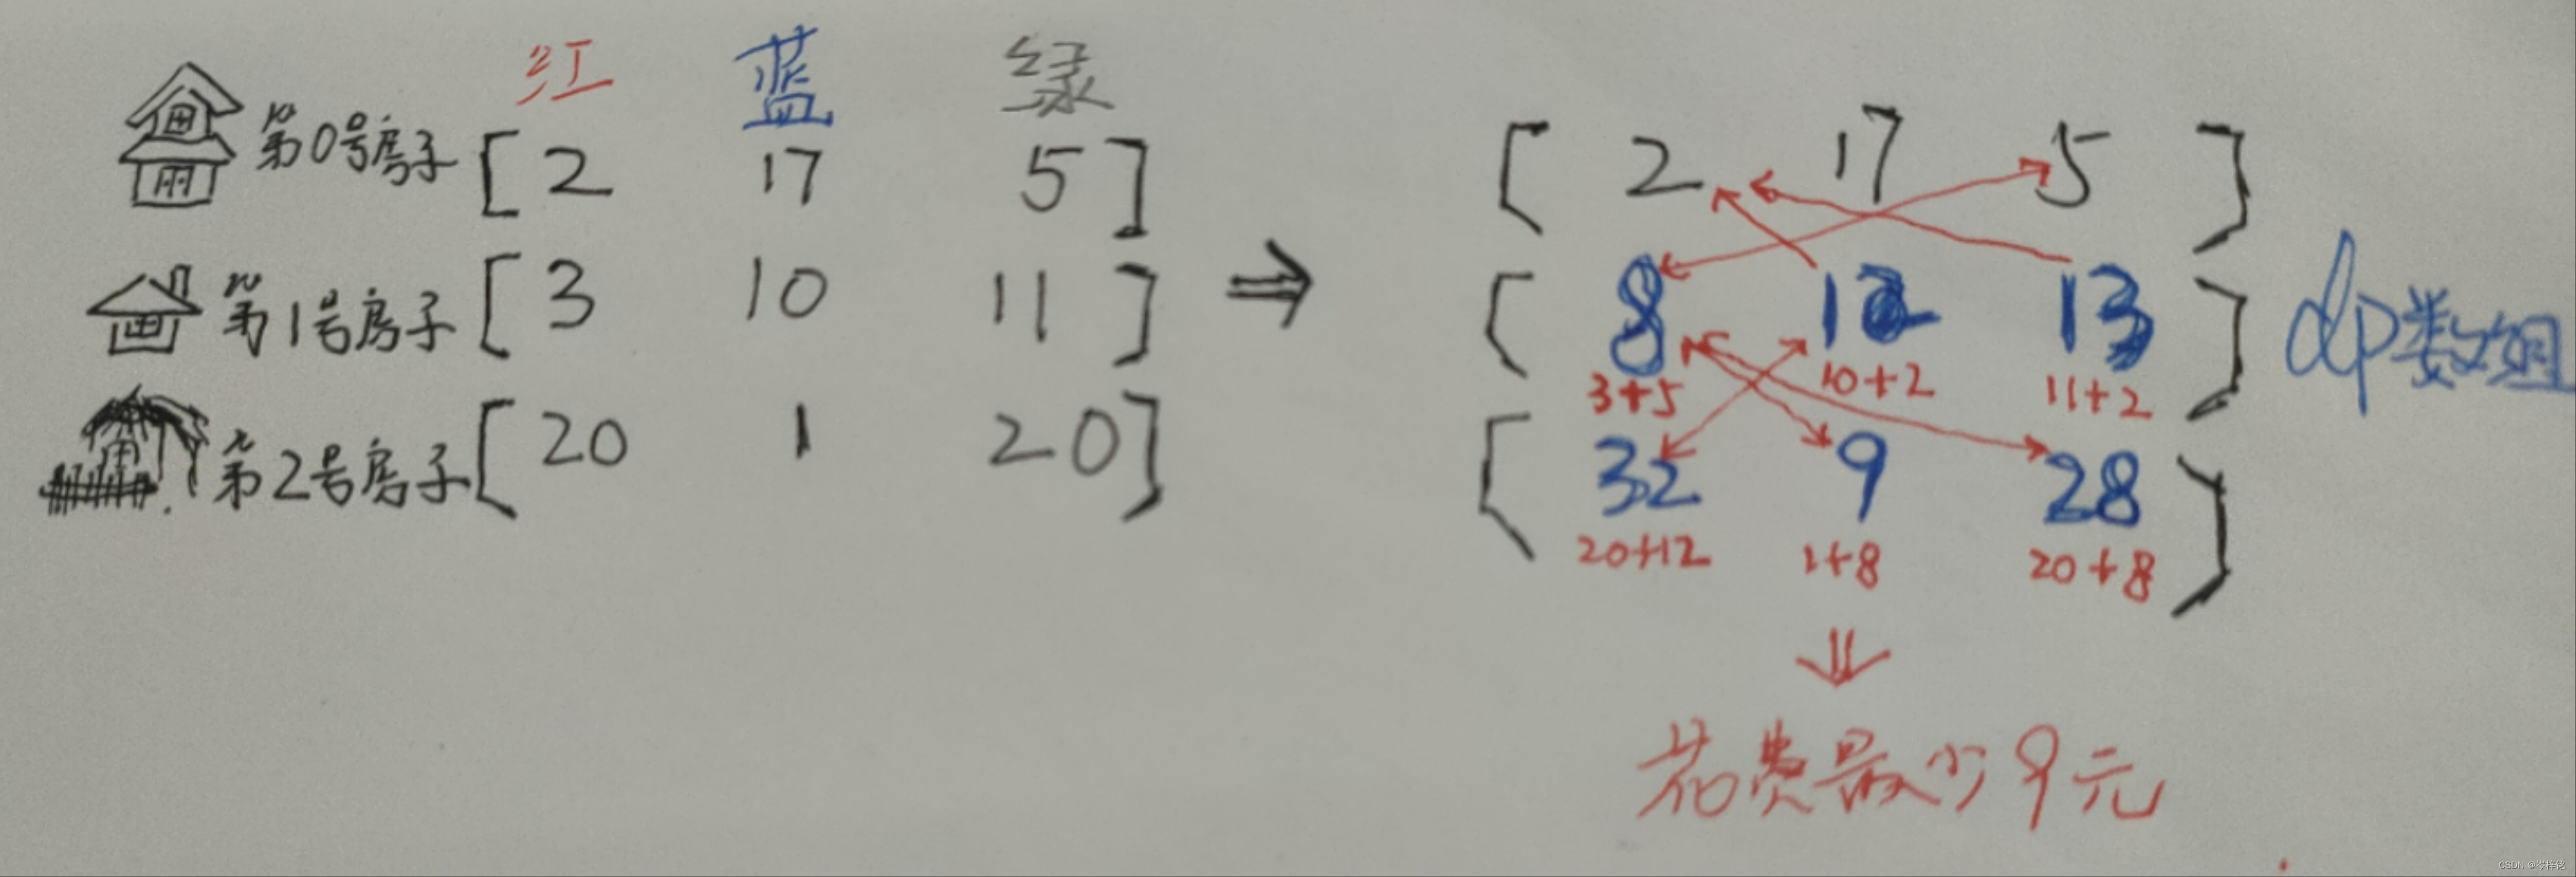 红 蓝 绿
第0号房子 [ 2 17 5 ]
第1号房子 [ 3 10 11 ]
第2号房子 [ 20 1 20 ]
⇒
[ 2 17 5 ]
[ 8 12 13 ]
3+5 10+2 11+2
[ 32 9 28 ]
20+12 1+8 20+8
dp数组
⇓
花费最少9元
CSDN @岑梓铭